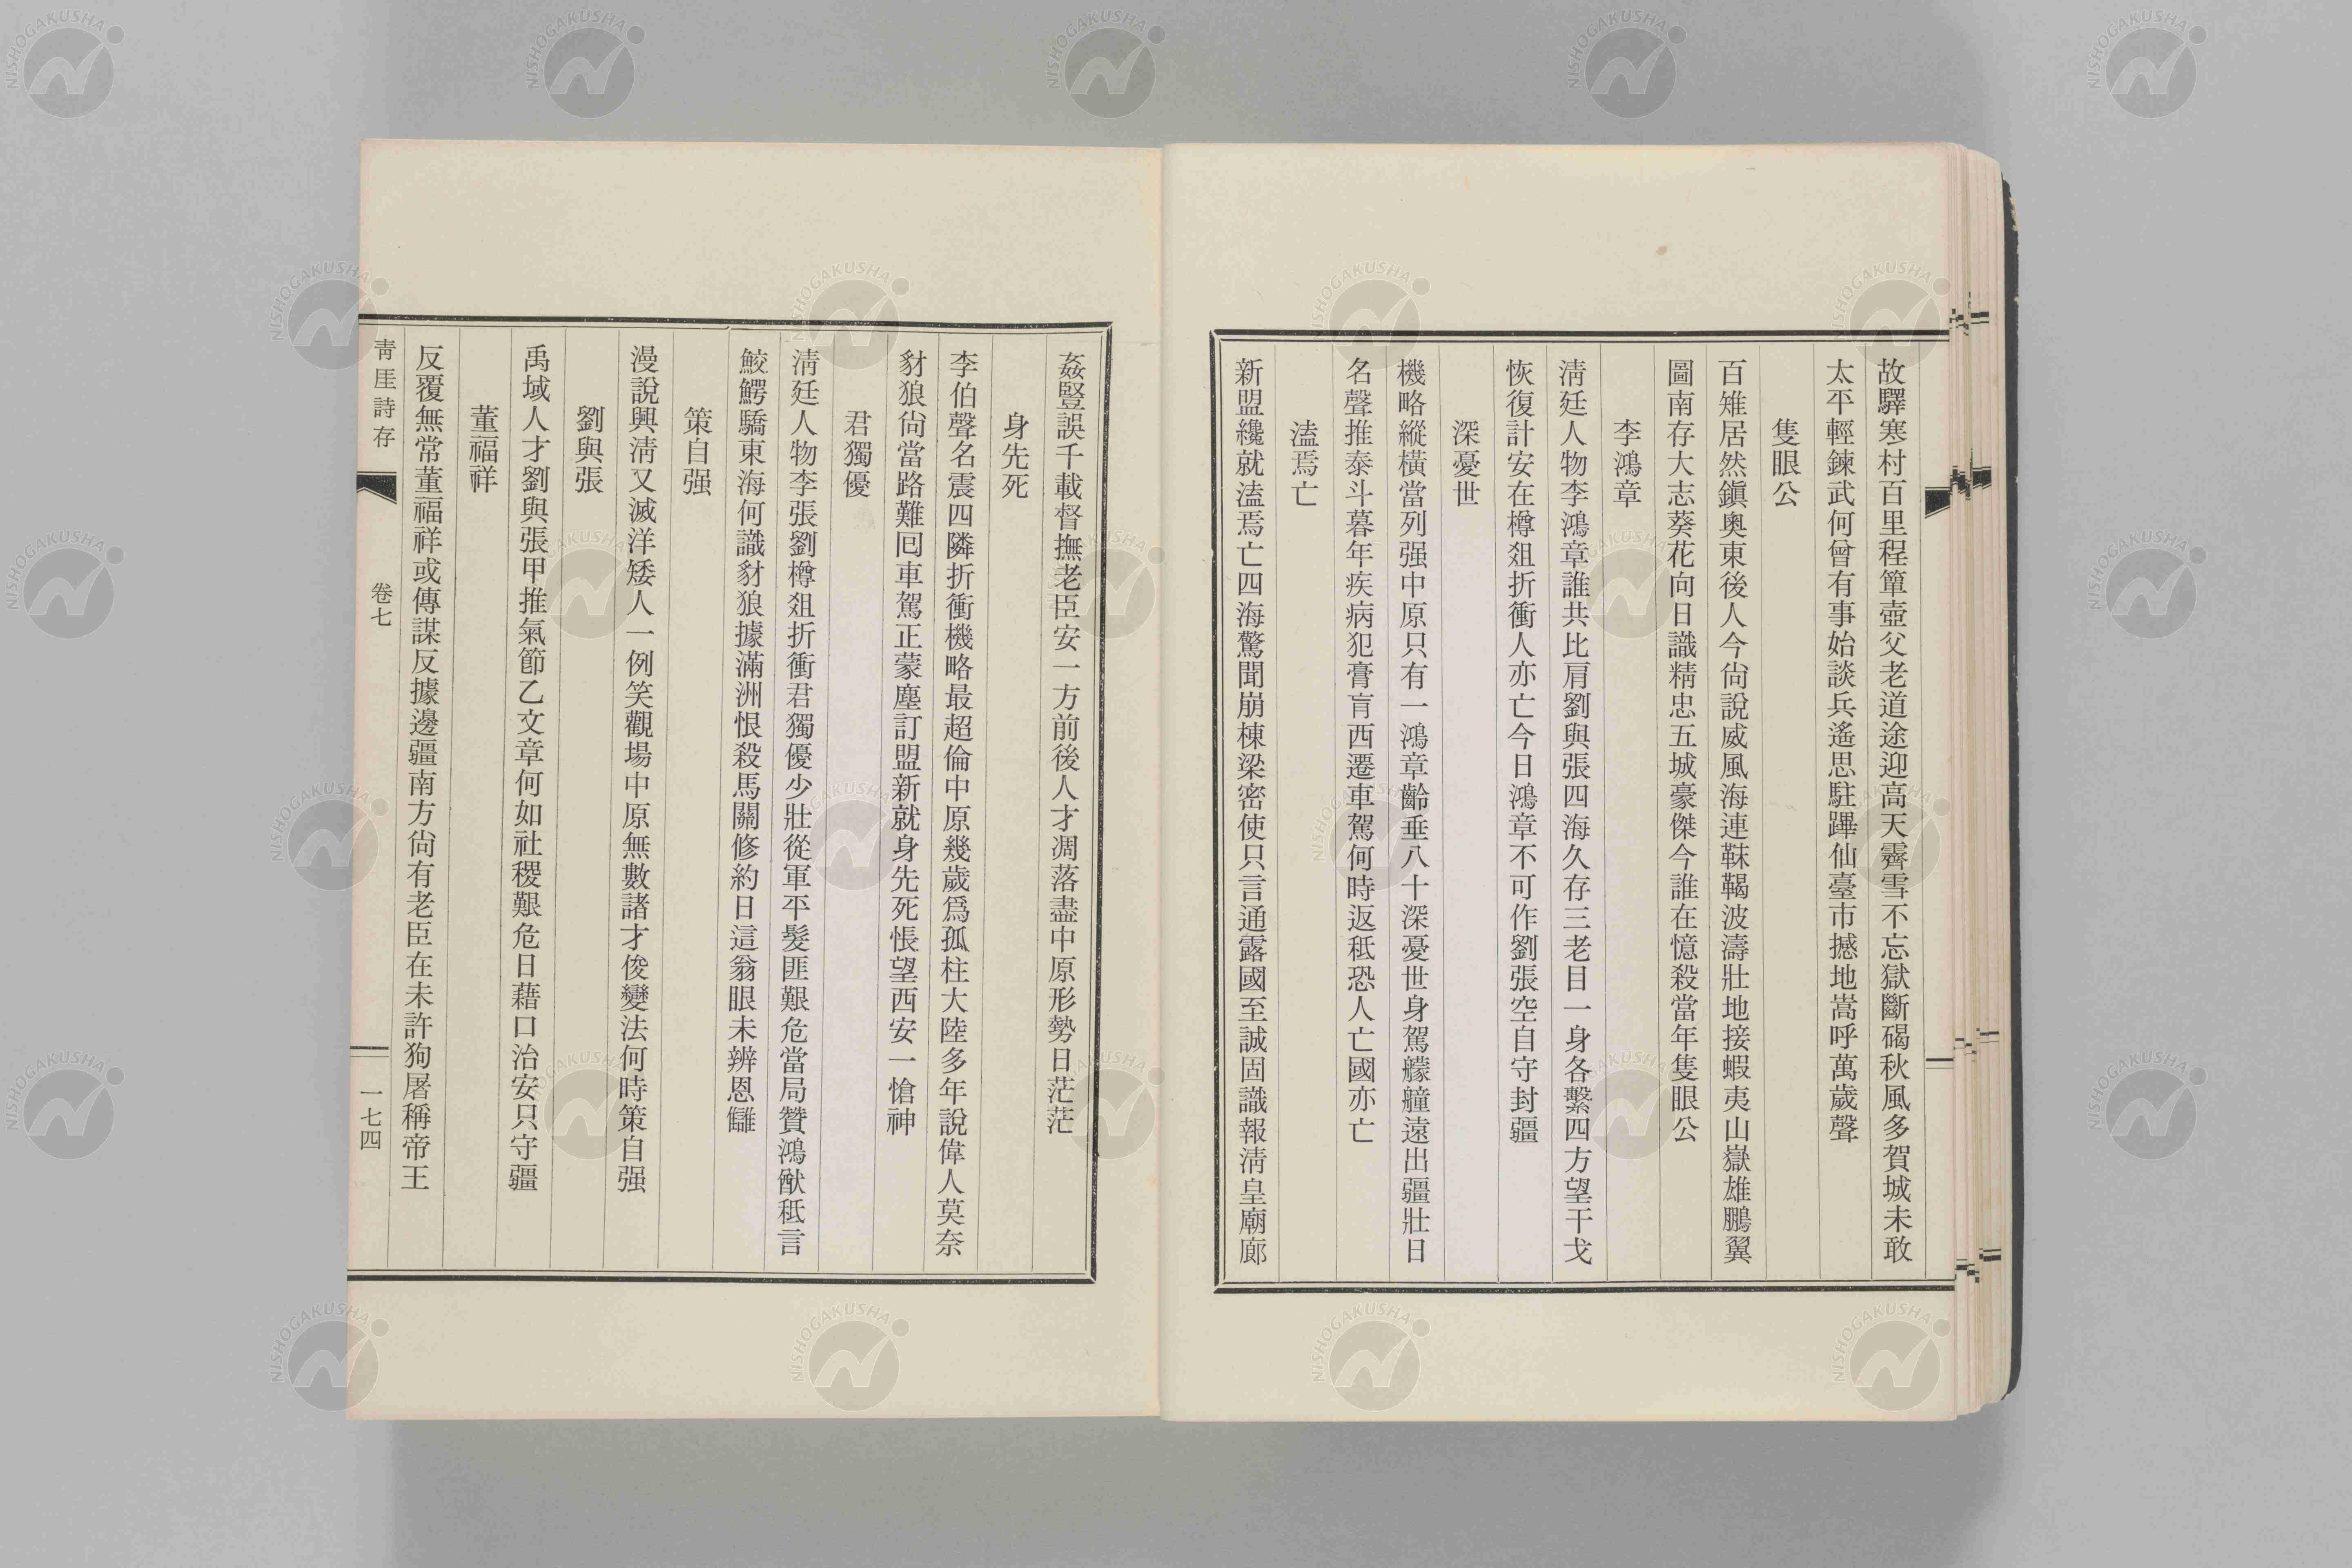 故驛寒村百里程簞壺父老道途迎高天霽雪不忘獄斷碣秋風多賀城未敢
太平輕鍊武何曾有事始談兵遙思駐蹕仙臺市撼地嵩呼萬歲聲
隻眼公
百雉居然鎭奧東後人今尙說威風海連靺鞨波濤壯地接蝦夷山嶽雄鵬翼
圖南存大志葵花向日識精忠五城豪傑今誰在憶殺當年隻眼公
李鴻章
淸廷人物李鴻章誰共比肩劉與張四海久存三老目一身各繫四方望干戈
恢復計安在樽俎折衝人亦亡今日鴻章不可作劉張空自守封疆
深憂世
機略縱橫當列强中原只有一鴻章齡垂八十深憂世身駕艨艟遠出疆壯日
名聲推泰斗暮年疾病犯膏肓西遷車駕何時返秪恐人亡國亦亡
溘焉亡
新盟纔就溘焉亡四海驚聞崩棟梁密使只言通露國至誠固識報淸皇廟廊
姦豎誤千載督撫老臣安一方前後人才凋落盡中原形勢日茫茫
身先死
李伯聲名震四隣折衝機略最超倫中原幾歲爲孤柱大陸多年說偉人莫奈
豺狼尙當路難回車駕正蒙塵訂盟新就身先死悵望西安一愴神
君獨優
淸廷人物李張劉樽俎折衝君獨優少壯從軍平髮匪艱危當局贊鴻猷秪言
鮫鰐驕東海何識豺狼據滿洲恨殺馬關修約日這翁眼未辨恩讎
策自强
漫說興淸又滅洋矮人一例笑觀場中原無數諸才俊變法何時策自强
劉與張
禹域人才劉與張甲推氣節乙文章何如社稷艱危日藉口治安只守疆
董福祥
反覆無常董福祥或傳謀反據邊疆南方尙有老臣在未許狗屠稱帝王
靑厓詩存
卷七
一七四
NISHOGAKUSHA